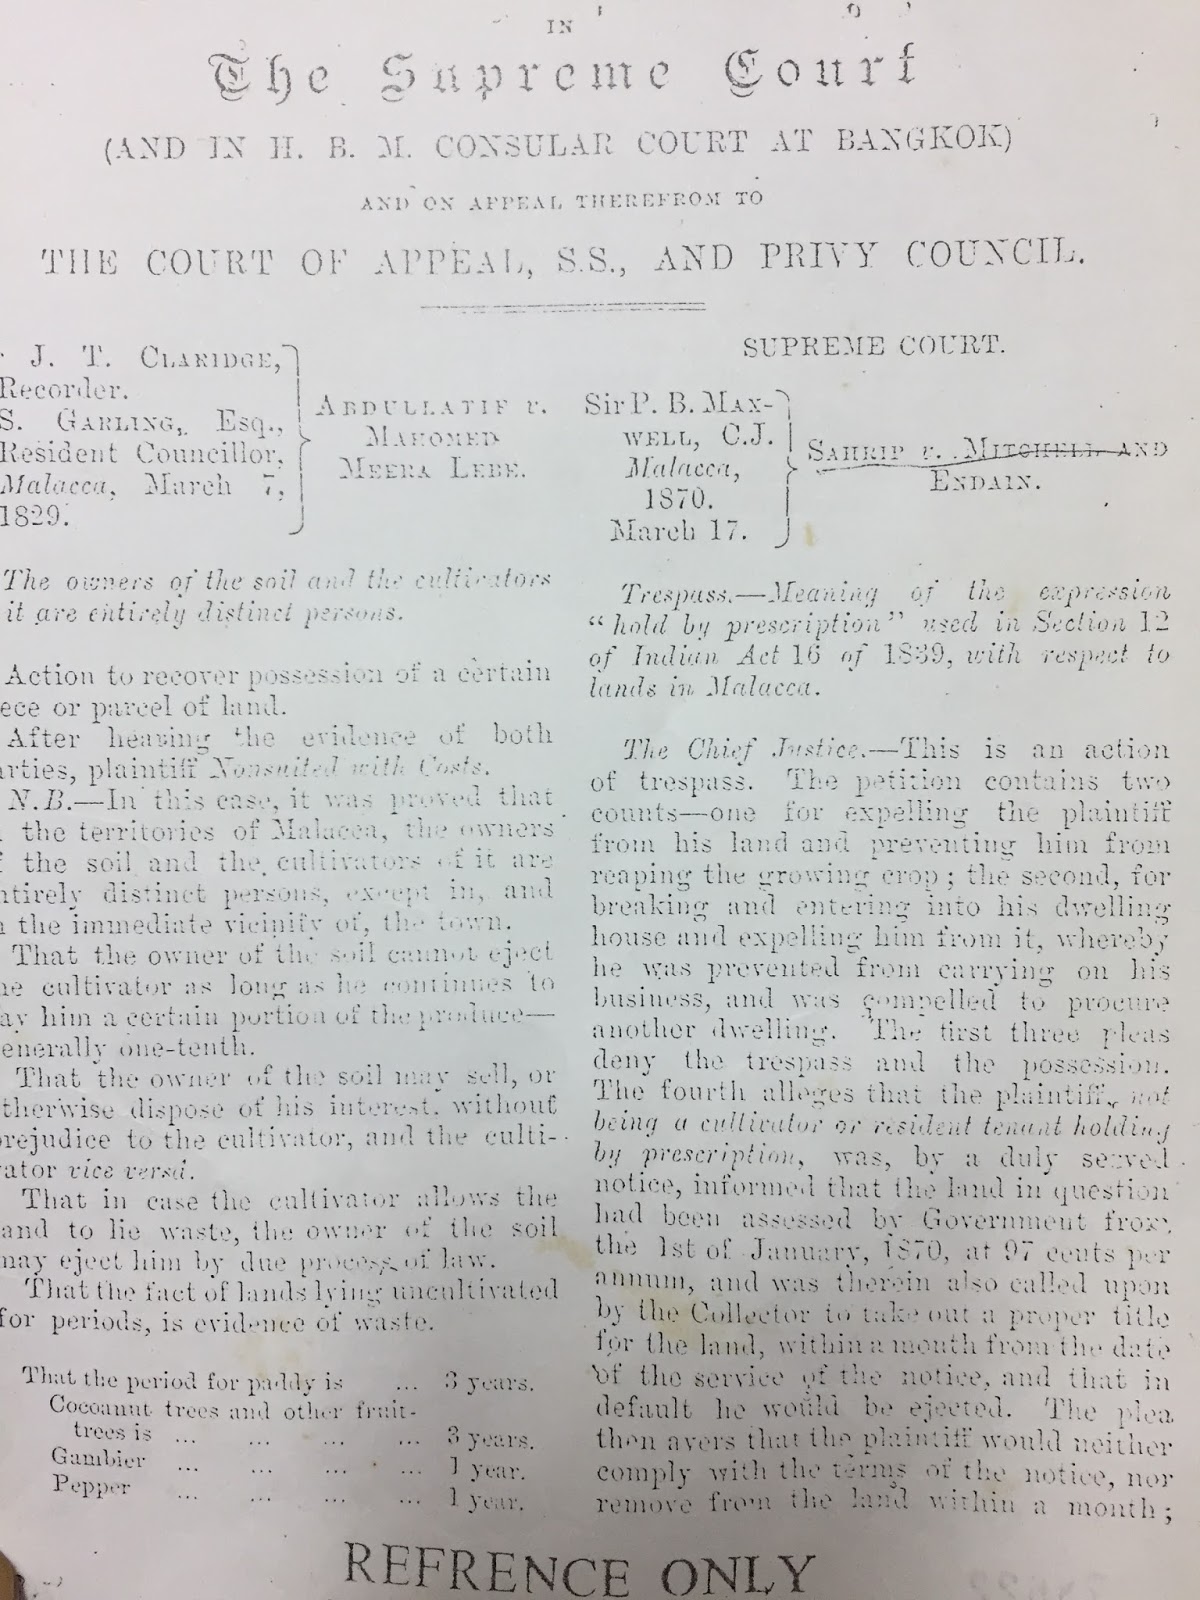 IN
The Supreme Court
(AND IN H. B. M. CONSULAR COURT AT BANGKOK)
AND ON APPEAL THEREFROM TO
THE COURT OF APPEAL, S.S., AND PRIVY COUNCIL.
J. T. CLARIDGE,
Recorder.
S. GARLING, Esq.,
Resident Councillor,
Malacca, March 7,
1829.
ABDULLATIF v.
MAHOMED
MEERA LEBE.
The owners of the soil and the cultivators
it are entirely distinct persons.
Action to recover possession of a certain
ece or parcel of land.
After hearing the evidence of both
arties, plaintiff Nonsuited with Costs.
N.B.—In this case, it was proved that
the territories of Malacca, the owners
f the soil and the cultivators of it are
ntirely distinct persons, except in, and
n the immediate vicinity of, the town.
That the owner of the soil cannot eject
he cultivator as long as he continues to
ay him a certain portion of the produce—
enerally one-tenth.
That the owner of the soil may sell, or
therwise dispose of his interest, without
prejudice to the cultivator, and the culti-
vator vice versâ.
That in case the cultivator allows the
and to lie waste, the owner of the soil
may eject him by due process of law.
That the fact of lands lying uncultivated
for periods, is evidence of waste.
That the period for paddy is ... 3 years.
Cocoanut trees and other fruit-
trees is ... ... ... ... 3 years.
Gambier ... ... ... ... 1 year.
Pepper ... ... ... ... 1 year.
SUPREME COURT.
Sir P. B. MAX-
WELL, C.J.
Malacca,
1870.
March 17.
SAHRIP v. MITCHELL AND
ENDAIN.
Trespass.—Meaning of the expression
"hold by prescription" used in Section 12
of Indian Act 16 of 1839, with respect to
lands in Malacca.
The Chief Justice.—This is an action
of trespass. The petition contains two
counts—one for expelling the plaintiff
from his land and preventing him from
reaping the growing crop; the second, for
breaking and entering into his dwelling
house and expelling him from it, whereby
he was prevented from carrying on his
business, and was compelled to procure
another dwelling. The first three pleas
deny the trespass and the possession.
The fourth alleges that the plaintiff, not
being a cultivator or resident tenant holding
by prescription, was, by a duly served
notice, informed that the land in question
had been assessed by Government from
the 1st of January, 1870, at 97 cents per
annum, and was therein also called upon
by the Collector to take out a proper title
for the land, within a month from the date
of the service of the notice, and that in
default he would be ejected. The plea
then avers that the plaintiff would neither
comply with the terms of the notice, nor
remove from the land within a month;
REFRENCE ONLY